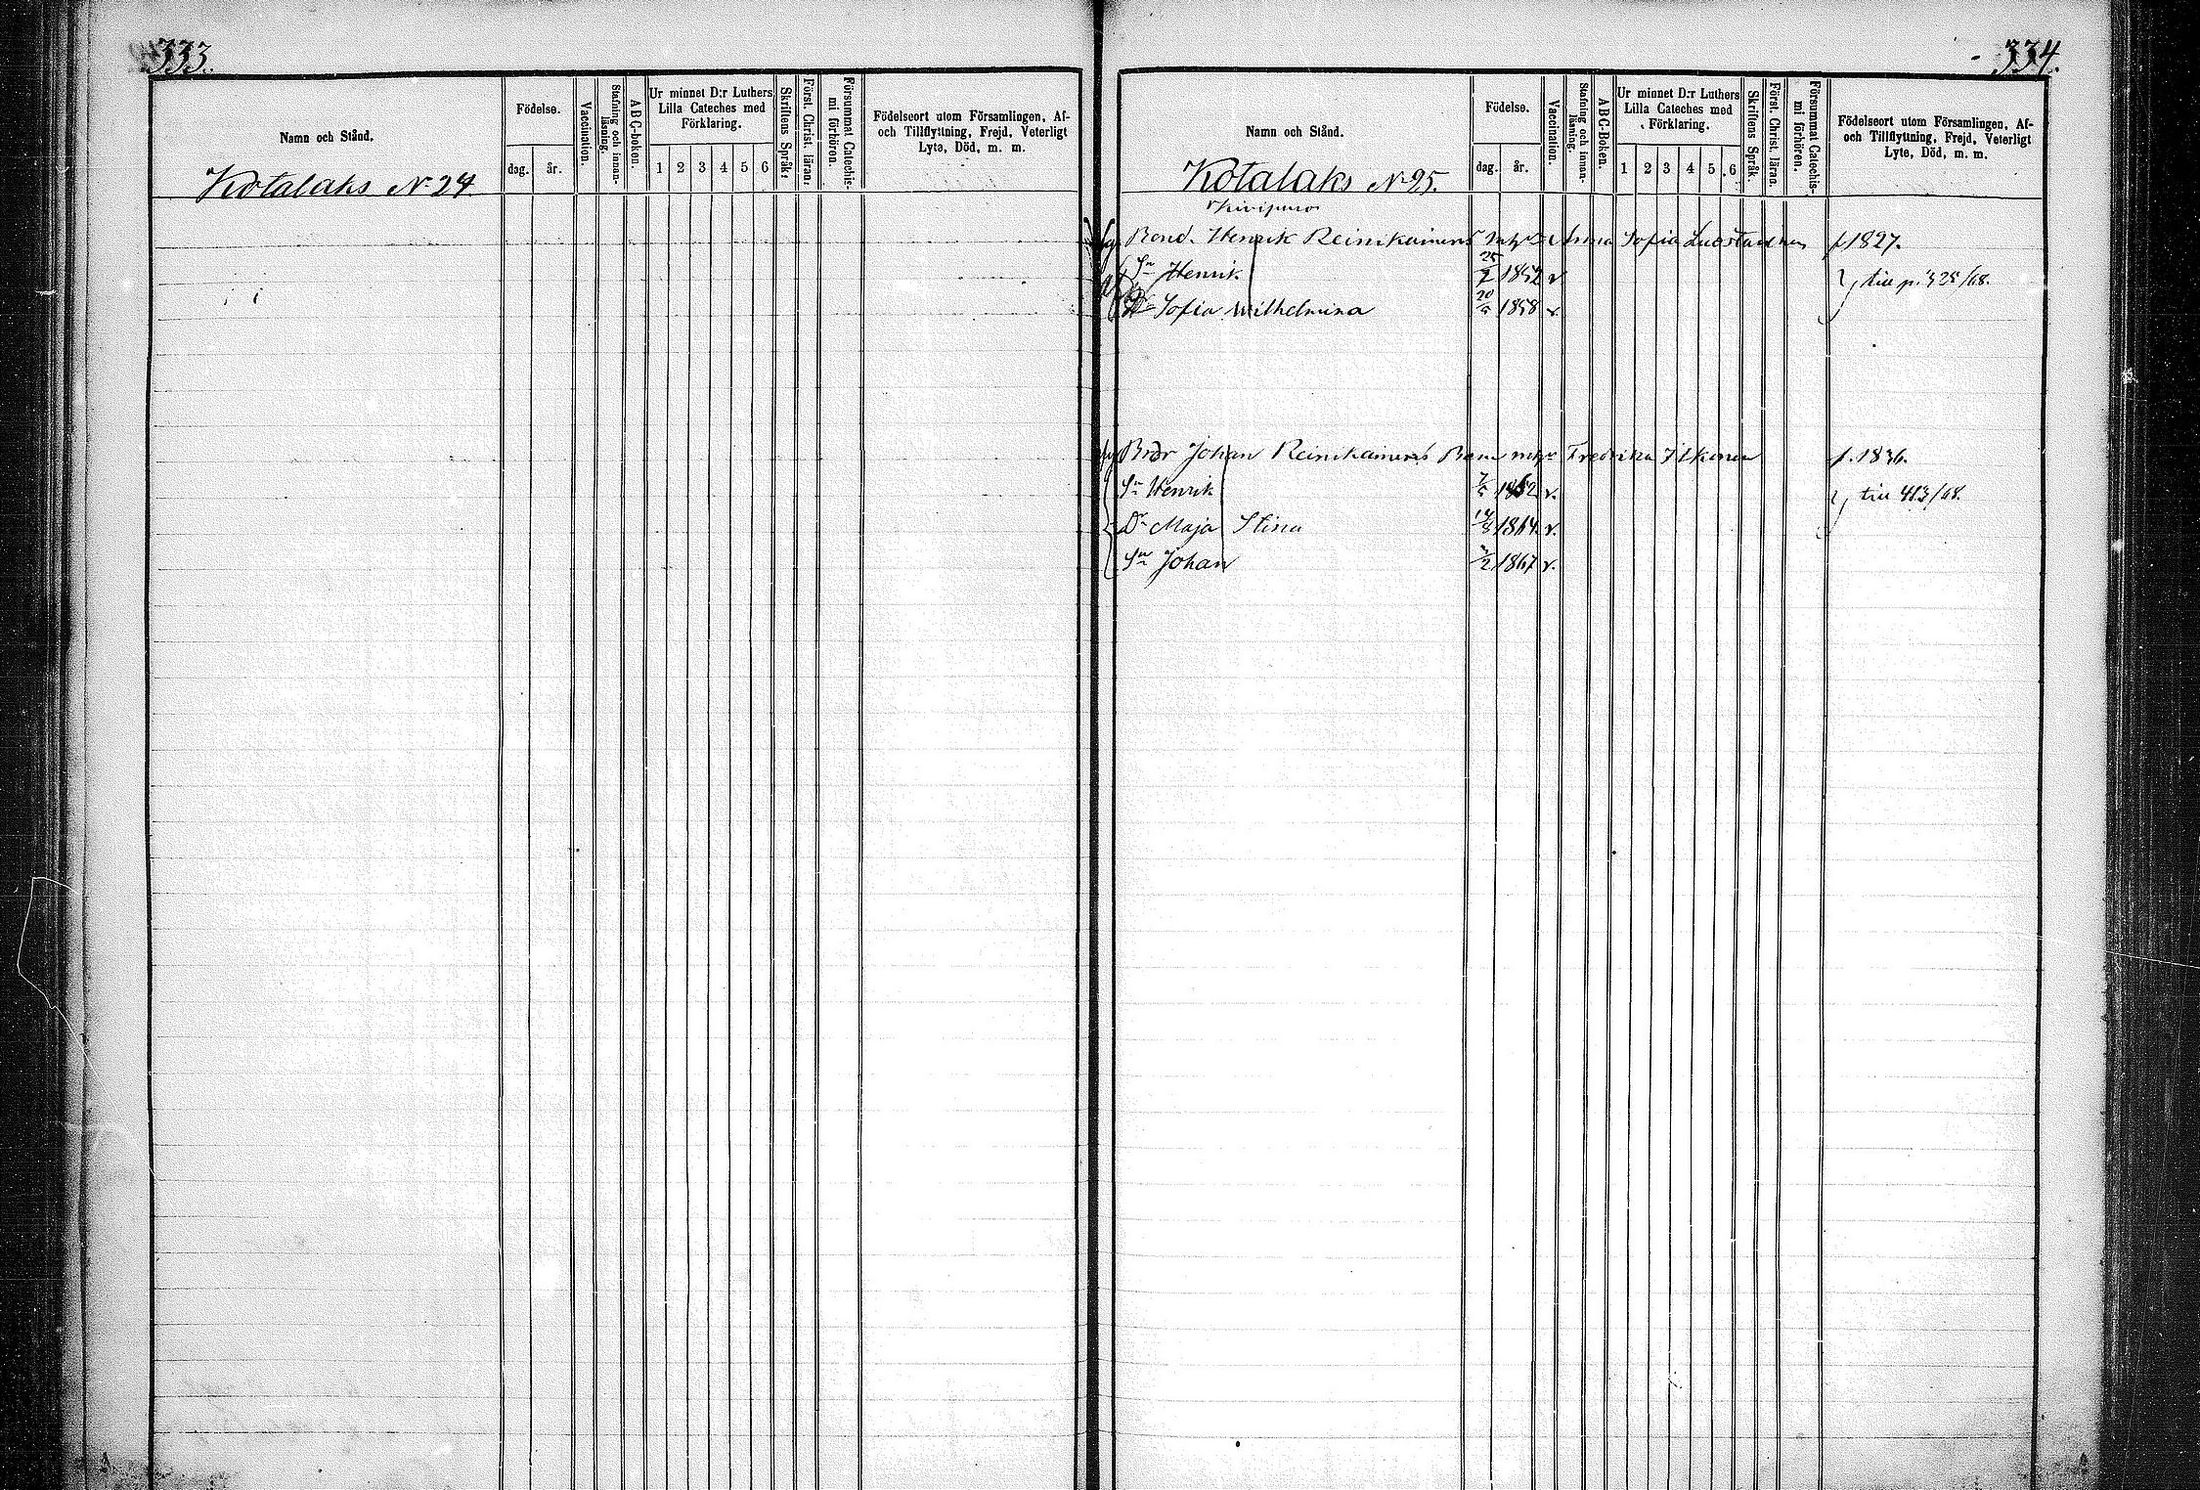 333.
Namn och Stånd.
Födelse.
dag.
år.
Vaccination.
Stafning och innan-
läsning.
ABC-boken.
Ur minnet D:r Luthers
Lilla Cateches med
Förklaring.
1 2 3 4 5 6
Skriftens Språk:
Först. Christ. läran:
Försummat Catechis-
mi förhören.
Födelseort utom Församlingen, Af-
och Tillflyttning, Frejd, Veterligt
Lyte, Död, m. m.
Kotalaks N. 24
334.
Namn och Stånd.
Födelse.
dag.
år.
Vaccination.
Stafning och innan-
läsning.
ABC-Boken.
Ur minnet D:r Luthers
Lilla Cateches med
Förklaring.
1 2 3 4 5 6
Skriftens Språk.
Först. Christ. läran.
Försummat Catechis-
mi förhören.
Födelseort utom Församlingen, Af-
och Tillflyttning, Frejd, Veterligt
Lyte, Död, m. m.
Kotalaks N. 25.
Kivipuro
Bond. Henrik Reinikainens Anna Sofia f. 1827.
Sn Henrik 25/7 1852 v till p. 325/68.
Dr Sofia Wilhelmina 20/5 1858 v.
Brdr Johan Reinikainens Barn Fredrika Ikonen f. 1836.
Sn Henrik 7/5 1862 v. till 413/68.
Dr Maja Stina 14/8 1864 v.
Sn Johan 1867 v.